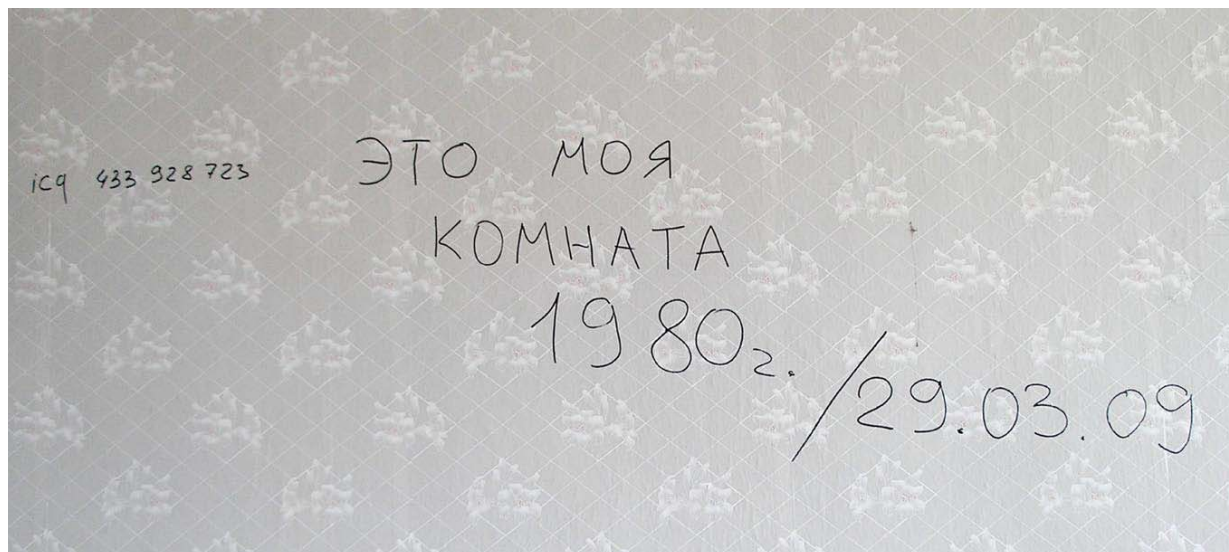 icq 433 928 723
ЭТО МОЯ
КОМНАТА
1980г.
/29.03.09